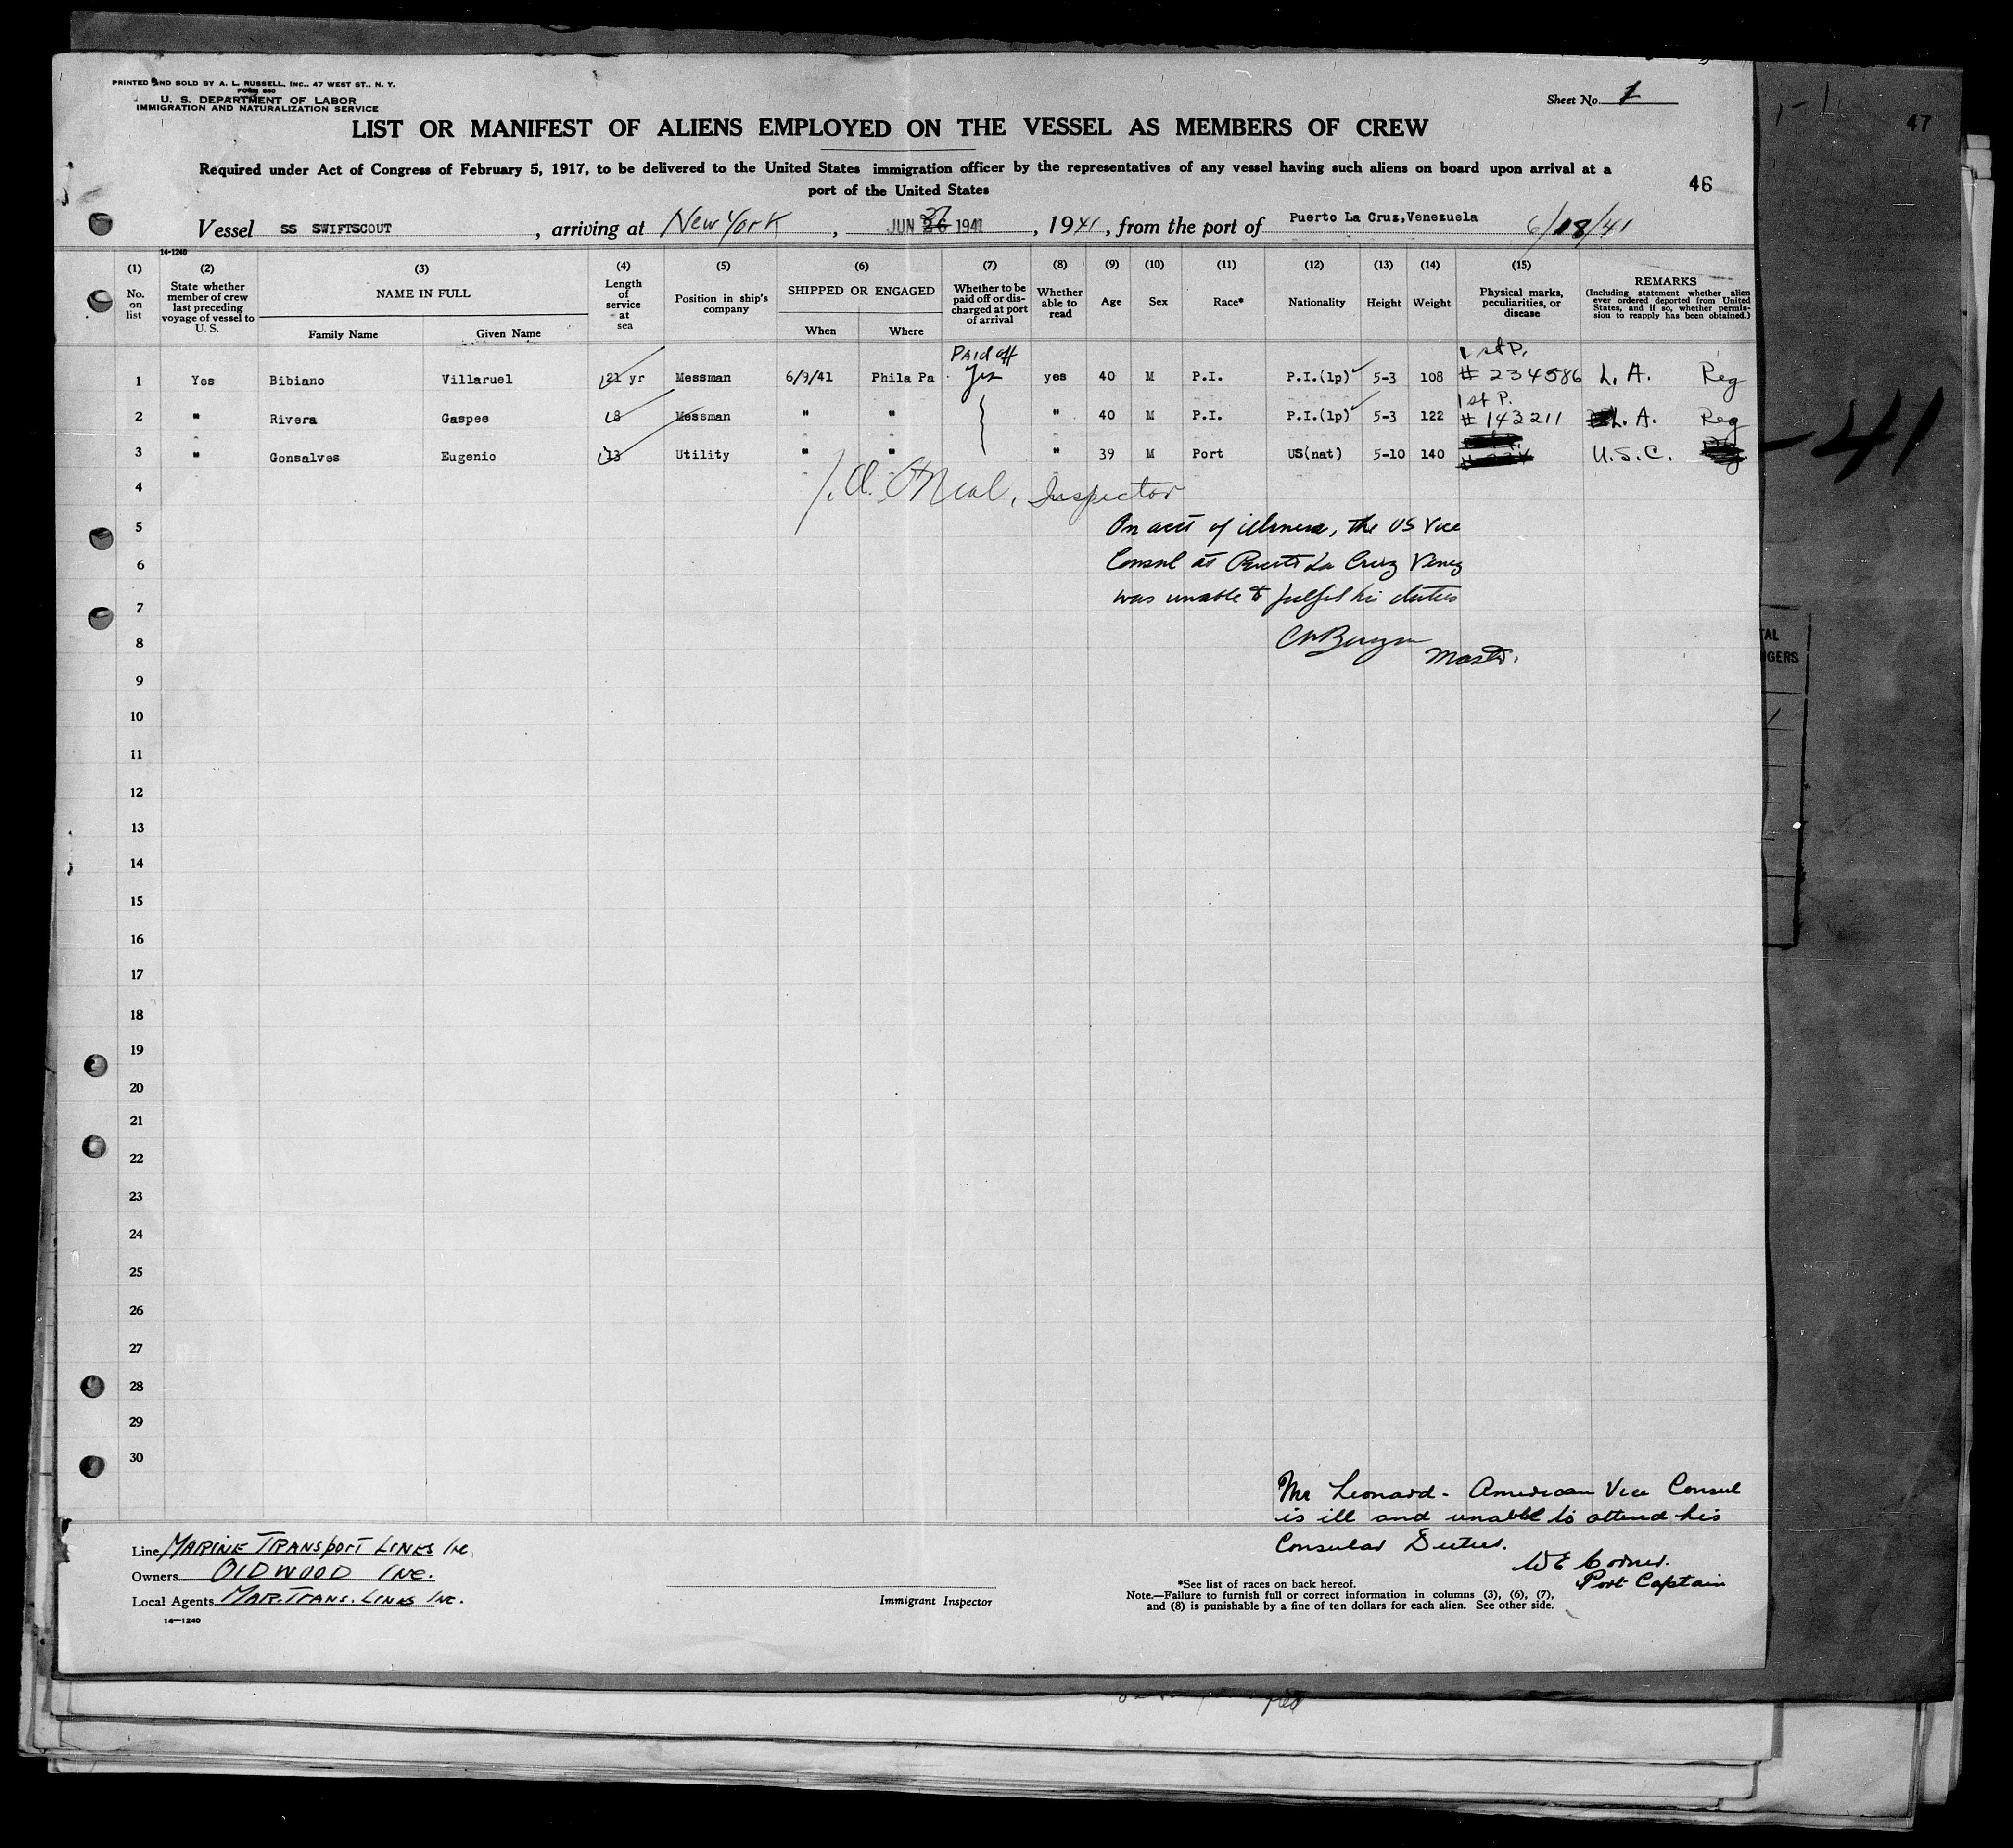 PRINTED AND SOLD BY A. L. RUSSELL, INC., 47 WEST ST., N. Y.
FORM 680
U. S. DEPARTMENT OF LABOR
IMMIGRATION AND NATURALIZATION SERVICE
Sheet No. 1
47
LIST OR MANIFEST OF ALIENS EMPLOYED ON THE VESSEL AS MEMBERS OF CREW
Required under Act of Congress of February 5, 1917, to be delivered to the United States immigration officer by the representatives of any vessel having such aliens on board upon arrival at a
port of the United States
46
Vessel SS SWIFTSCOUT, arriving at New York, JUN 26 27 1941, 1941, from the port of Puerto La Cruz, Venezuela 6/18/41
14-1240
(1) (2) (3) (4) (5) (6) (7) (8) (9) (10) (11) (12) (13) (14) (15)
No. on list
State whether member of crew last preceding voyage of vessel to U. S.
NAME IN FULL
Family Name Given Name
Length of service at sea
Position in ship's company
SHIPPED OR ENGAGED
When Where
Whether to be paid off or discharged at port of arrival
Whether able to read
Age
Sex
Race*
Nationality
Height
Weight
Physical marks, peculiarities, or disease
REMARKS
(Including statement whether alien ever ordered deported from United States, and if so, whether permission to reapply has been obtained.)
Paid off 1st P.
1 Yes Bibiano Villaruel 21 yr Messman 6/9/41 Phila Pa Yes yes 40 M P.I. P.I.(lp) 5-3 108 # 234586 L. A. Reg
1st P.
2 " Rivera Gaspee 8 Messman " " " 40 M P.I. P.I.(lp) 5-3 122 # 143211 L. A. Reg
3 " Gonsalves Eugenio 13 Utility " " " 39 M Port US(nat) 5-10 140 U.S.C.
-41
4 O'Neal, Inspector
5 On acct of illness, the US Vice
6 Consul at Puerto La Cruz Venez
7 was unable to fulfil his duties
8 Master.
9
10
11
12
13
14
15
16
17
18
19
20
21
22
23
24
25
26
27
28
29
30
Mr Leonard - American Vice Consul
is ill and unable to attend his
Consular Duties.
Port Captain
Line MARINE TRANSPORT LINES Inc.
Owners OLDWOOD INC.
Local Agents MAR. TRANS. LINES INC.
14—1240
Immigrant Inspector
*See list of races on back hereof.
Note.—Failure to furnish full or correct information in columns (3), (6), (7),
and (8) is punishable by a fine of ten dollars for each alien. See other side.